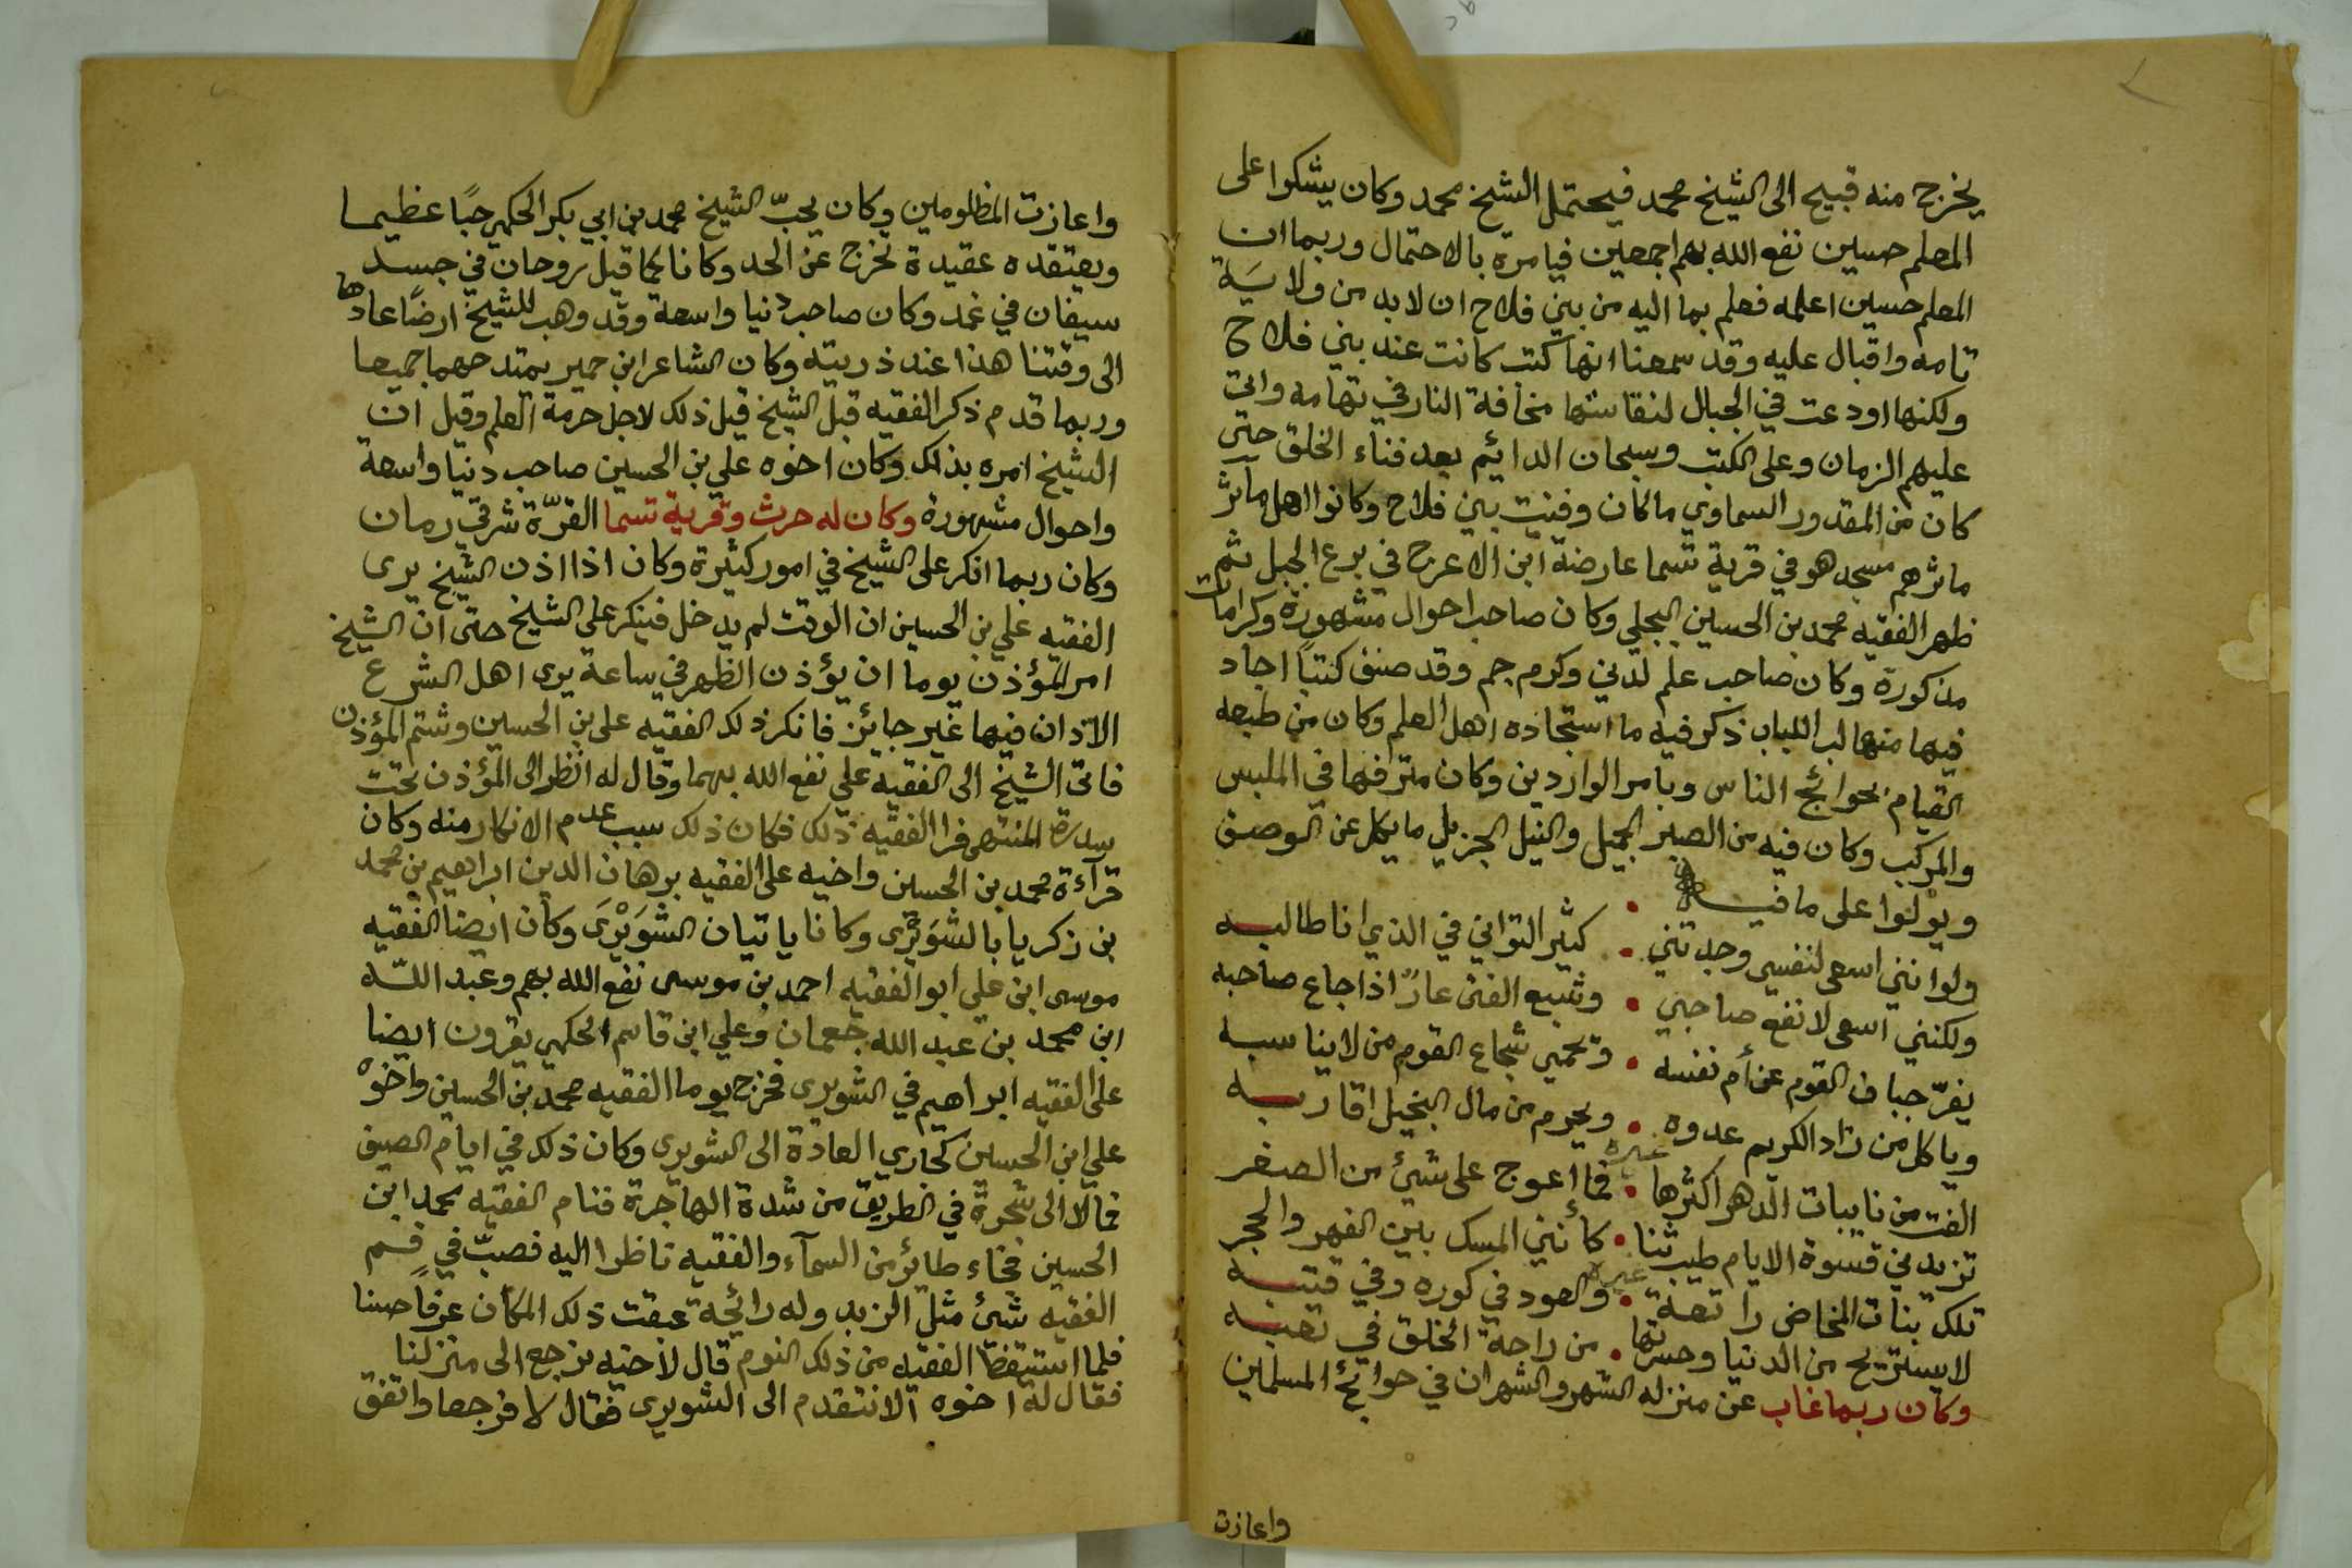 يخرج منه قبيح الى الشيخ محمد فيحتمل الشيخ محمد وكان يشكوا على
المعلم حسين نفع الله بهم اجمعين فيامره بالاحتمال وربما ان
المعلم حسين اعلمه فعلم بما اليه من بني فلاح ان لابد من ولاية
تامه واقبال عليه وقد سمعنا انها كتب كانت عند بني فلاح
ولكنها اودعت في الجبال لنفاستها مخافة النار في تهامه واتى
عليهم الزمان وعلى الكتب وسبحان الدايم بعد فناء الخلق حتى
كان من المقدور السماوي ماكان وفنيت بني فلاح وكانوا اهل مآثر
ماثرهم مسجد هو في قرية تسما عارضة ابن الاعرج في برع الجبل ثم
ظهر الفقيه محمد بن الحسين البجلي وكان صاحب احوال مشهورة وكرامات
مذكورة وكان صاحب علم لدني وكرم جم وقد صنف كتبًا اجاد
فيها منها لب اللباب ذكر فيه ما استجاده اهل العلم وكان من طبعه
القيام بحوائج الناس وبامر الواردين وكان مترافها في الملبس
والمركب وكان فيه من الصبر الجميل والنيل الجزيل ما يكل عن الوصف
ويؤلوا على ما فيه
ولوا نني اسعى لنفسي وجدتني • كثير التواني في الذي انا طالبه
ولكنني اسعى لانفع صاحبي • وشبع الفتى عارٌ اذا جاع صاحبه
يفرّ جبان القوم عن أم نفسه • وتحمي شجاع القوم من لا يناسبه
وياكل من زاد الكريم عدوه • ويحرم من مال البخيل اقاربه
غيره
الفت من نايبات الدهر اكثرها • فما اعوج على شيئ من الصغر
تزيدني قسوة الايام طيب ثنا • كأنني المسك بين الفهر والحجر
غيره
تلك بنات المخاض راتعة • والعود في كوره وفي قتبه
لا يستريح من الدنيا وحسرتها • من راحة الخلق في تعبه
وكان ربما غاب عن منزله الشهر والشهران في حوائج المسلمين
واعازت
واعازت المظلومين وكان يحبّ الشيخ محمد بن ابي بكر الحكمي حبًا عظيما
ويعتقده عقيدة تخرج عن الحد وكانا كما قيل روحان في جسد
سيفان في غمد وكان صاحب دنيا واسعة وقد وهب للشيخ ارضًا عادها
الى وقتنا هذا عند ذريته وكان الشاعر ابن حمير يمتدحهما جميعا
وربما قدم ذكر الفقيه قبل الشيخ قيل ذلك لاجل حرمة العلم وقيل ان
الشيخ امره بذلك وكان اخوه علي بن الحسين صاحب دنيا واسعة
واحوال مشهورة وكان له حرث وقرية تسما القرّة شرقي رمان
وكان ربما انكر على الشيخ في امور كثيرة وكان اذا اذن الشيخ يرى
الفقيه علي بن الحسين ان الوقت لم يدخل فينكر على الشيخ حتى ان الشيخ
امر المؤذن يوما ان يؤذن الظهر في ساعة يرى اهل الشرع
الاذان فيها غير جائز فانكر ذلك الفقيه علي بن الحسين وشتم المؤذن
فاتى الشيخ الى الفقيه علي نفع الله بهما وقال له انظر الى المؤذن تحت
سدرة المنتهى فرا الفقيه ذلك فكان ذلك سبب عدم الانكار منه وكان
قرآءة محمد بن الحسين واخيه على الفقيه برهان الدين ابراهيم بن محمد
بن زكريا بالشويرى وكانا ياتيان الشويرى وكان ايضا الفقيه
موسى ابن علي ابو الفقيه احمد بن موسى نفع الله بهم وعبد اللّه
ابن محمد بن عبد الله جعمان وعلي ابن قاسم الحكمي يقرون ايضا
على الفقيه ابراهيم في الشويرى فخرج يوما الفقيه محمد بن الحسين واخوه
علي ابن الحسين كجاري العادة الى الشويرى وكان ذلك في ايام الصيف
فمالا الى شجرة في الطريق من شدة الهاجرة فنام الفقيه محمد ابن
الحسين فجاء طائر من السمآء والفقيه ناظرا اليه فصبّ في فم
الفقيه شئ مثل الزبد وله رائحة عبقت ذلك المكان عرفًا حسنا
فلما استيقظ الفقيه من ذلك النوم قال لاخيه نرجع الى منزلنا
فقال له اخوه الا نتقدم الى الشويرى فقال لا فرجعا واتفق